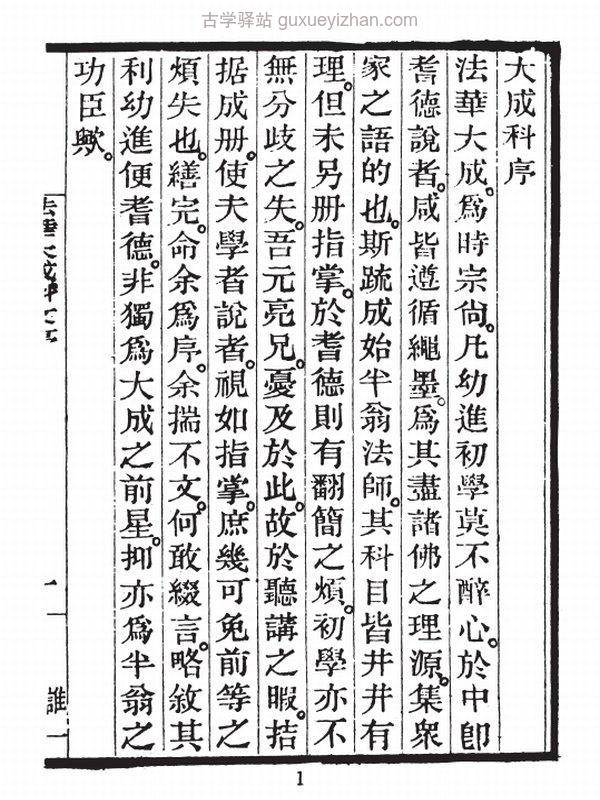 古学驿站 guxueyizhan.com
大成科序
法華大成。爲時宗尙。凡幼進初學莫不醉心。於中卽
耆德說者。咸皆遵循繩墨。爲其盡諸佛之理源。集衆
家之語的也。斯疏成始半翁法師。其科目皆井井有
理。但未另册指掌。於耆德則有翻簡之煩。初學亦不
無分歧之失。吾元亮兄。憂及於此。故於聽講之暇。拮
据成册。使夫學者說者。視如指掌。庶幾可免前等之
煩失也。繕完。命余爲序。余揣不文。何敢綴言。略敘其
利幼進便耆德。非獨爲大成之前星。抑亦爲半翁之
功臣歟。
法華大成科文序
一
誰一
1